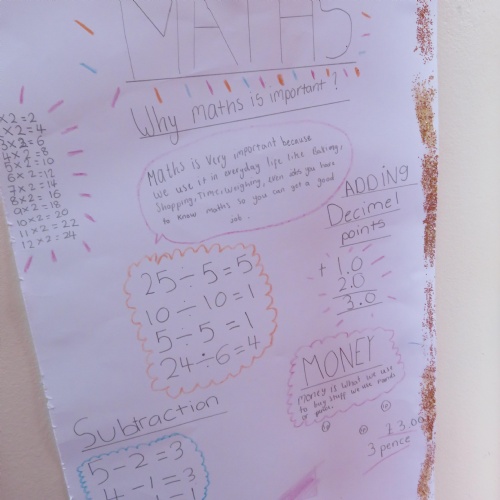 MATHS
Why maths is important?
x2=2
x2=4
3x2=6
4x2=8
5x2=10
6x2=12
7x2=14
8x2=16
9x2=18
10x2=20
11x2=22
12x2=24
Maths is very important because
we use it in everyday life like Baking,
Shopping, Time, weighing, even jobs you have
to know maths so you can get a good
job.
ADDING
Decimel
points
+ 1.0
2.0
3.0
25÷5=5
10÷10=1
5÷5=1
24÷6=4
MONEY
Money is what we use
to buy stuff we use
or pence.
3 pence
Subtraction
5-2=3
4-1=3